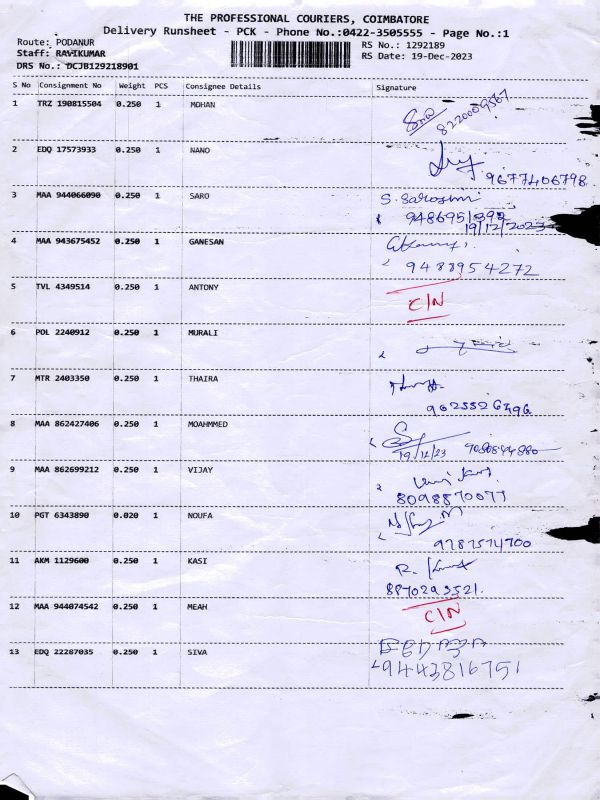 THE PROFESSIONAL COURIERS, COIMBATORE
Delivery Runsheet - PCK - Phone No.:0422-3505555 - Page No.:1
Route: PODANUR
Staff: RAVIKUMAR
DRS No.: DCJB129218901
RS No.: 1292189
RS Date: 19-Dec-2023
S No Consignment No Weight PCS Consignee Details Signature
1 TRZ 190815504 0.250 1 MOHAN
2 EDQ 17573933 0.250 1 NANO
9677406798
3 MAA 944066090 0.250 1 SARO
19/12/2023
4 MAA 943675452 0.250 1 GANESAN
9488954272
5 TVL 4349514 0.250 1 ANTONY
C/N
6 POL 2240912 0.250 1 MURALI
7 MTR 2403350 0.250 1 THAIRA
8 MAA 862427406 0.250 1 MOAHMMED
19/12/23
9 MAA 862699212 0.250 1 VIJAY
8098870077
10 PGT 6343890 0.020 1 NOUFA
11 AKM 1129600 0.250 1 KASI
12 MAA 944074542 0.250 1 MEAH
C/N
13 EDQ 22287035 0.250 1 SIVA
9443816751